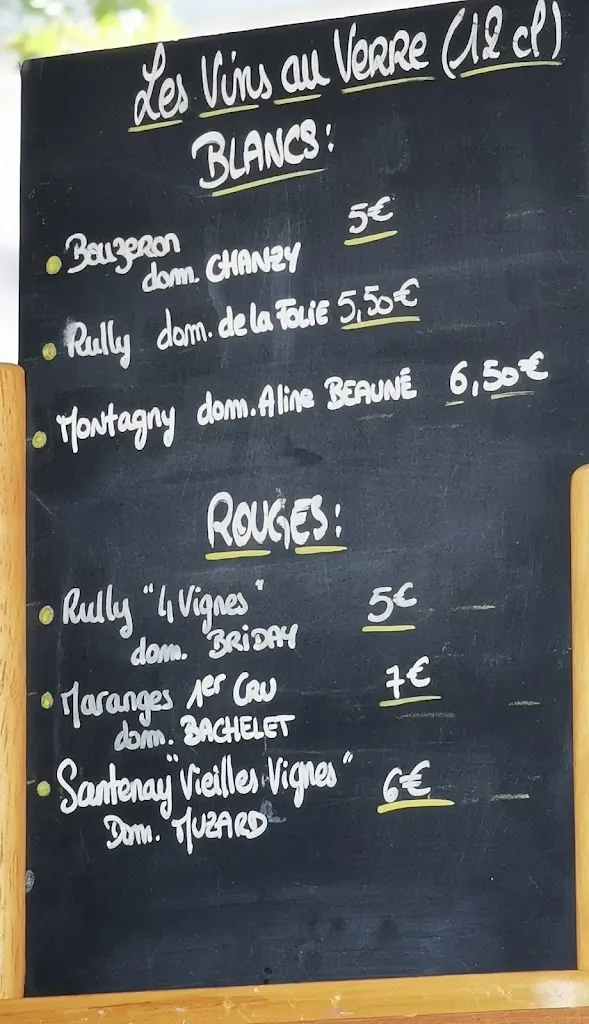 Les Vins au Verre (12 cl)
BLANCS:
Bouzeron 5€
dom. CHANZY
Rully dom. de la Folie 5,50€
Montagny dom. Aline BEAUNÉ 6,50€
ROUGES:
Rully "4 Vignes" 5€
dom. BRIDAY
Maranges 1er Cru 7€
dom. BACHELET
Santenay "Vieilles Vignes" 6€
Dom. MUZARD